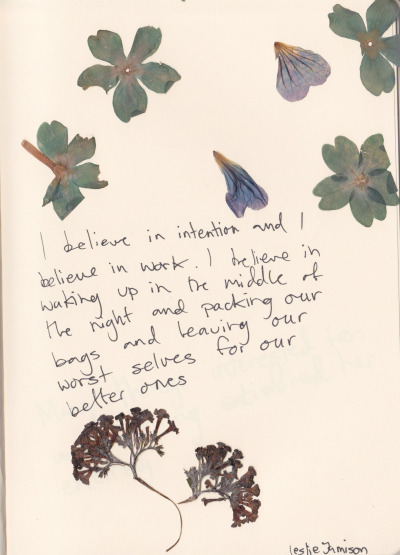 I believe in intention and I
believe in work. I believe in
waking up in the middle of
the night and packing our
bags and leaving our
worst selves for our
better ones
leslie Jamison